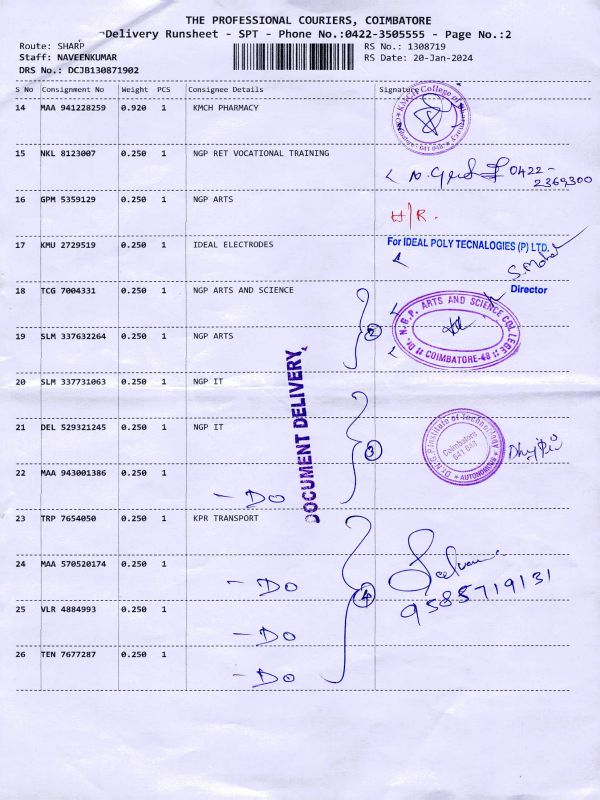 THE PROFESSIONAL COURIERS, COIMBATORE
Delivery Runsheet - SPT - Phone No.:0422-3505555 - Page No.:2
Route: SHARP RS No.: 1308719
Staff: NAVEENKUMAR RS Date: 20-Jan-2024
DRS No.: DCJB130871902
S No Consignment No Weight PCS Consignee Details Signature
14 MAA 941228259 0.920 1 KMCH PHARMACY
KMCH College of Pharmacy
641 048
15 NKL 8123007 0.250 1 NGP RET VOCATIONAL TRAINING
0422-
2369300
16 GPM 5359129 0.250 1 NGP ARTS
H/R.
17 KMU 2729519 0.250 1 IDEAL ELECTRODES
For IDEAL POLY TECNALOGIES (P) LTD.
S. Mohan
Director
18 TCG 7004331 0.250 1 NGP ARTS AND SCIENCE
19 SLM 337632264 0.250 1 NGP ARTS
2
Dr. N.G.P. ARTS AND SCIENCE COLLEGE
COIMBATORE-48
20 SLM 337731063 0.250 1 NGP IT
DOCUMENT DELIVERY
21 DEL 529321245 0.250 1 NGP IT
3
Dr.N.G.P.Institute of Technology
Coimbatore
641 048
AUTONOMOUS
22 MAA 943001386 0.250 1
- DO
23 TRP 7654050 0.250 1 KPR TRANSPORT
24 MAA 570520174 0.250 1
- DO
4
9585719131
25 VLR 4884993 0.250 1
- DO
26 TEN 7677287 0.250 1
- DO